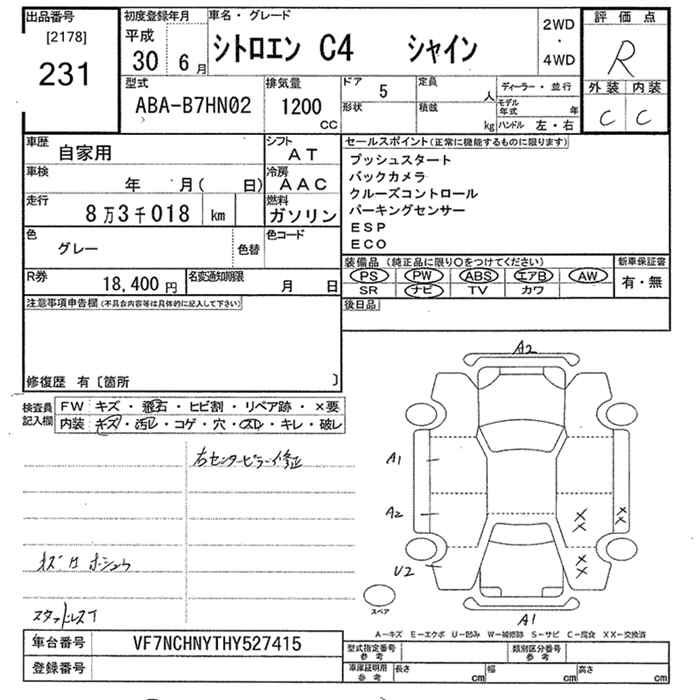 出品番号
[2178]
231
初度登録年月
平成
30 6月
車名・グレード
シトロエン C4 シャイン
2WD
・
4WD
評価点
R
外装 内装
C C
型式
ABA-B7HN02
排気量
1200
CC
ドア 5
形状
定員 人
積載 kg
ディーラー・並行
モデル年式 年
ハンドル 左・右
車歴
自家用
シフト
AT
車検
年 月( 日)
冷房
AAC
走行
8万3千018 km
燃料
ガソリン
色
グレー
色替
色コード
R券
18,400 円
名変通知期限
月 日
セールスポイント(正常に機能するものに限ります)
プッシュスタート
バックカメラ
クルーズコントロール
パーキングセンサー
ESP
ECO
装備品(純正品に限り○をつけてください)
PS PW ABS エアB AW
SR ナビ TV カワ
新車保証書
有・無
後日品
注意事項申告欄(不具合内容等は具体的に記入して下さい)
修復歴 有〔箇所 〕
検査員記入欄
FW キズ・飛石・ヒビ割・リペア跡・×要
内装 キズ・汚レ・コゲ・穴・スレ・キレ・破レ
右センターピラー修正
スタッドレスT
A2
A1
A2
U2
A1
XX
XX
XX
スペア
A-キズ E-エクボ U-凹み W-補修跡 S-サビ C-腐食 XX-交換済
車台番号 VF7NCHNYTHY527415
登録番号
型式指定番号 参考
類別区分番号 参考
車庫証明用 参考
長さ cm
幅 cm
高さ cm